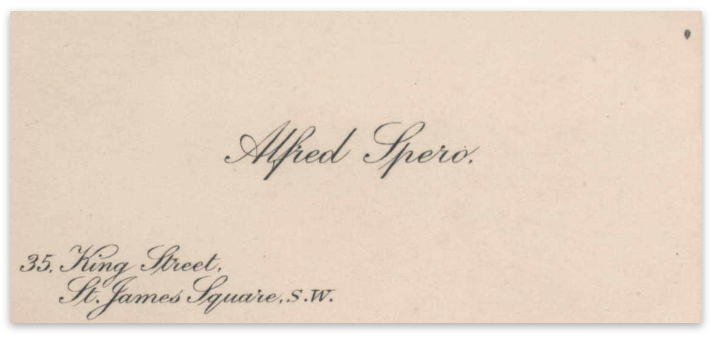 Alfred Spero.
35. King Street,
St. James Square, S.W.